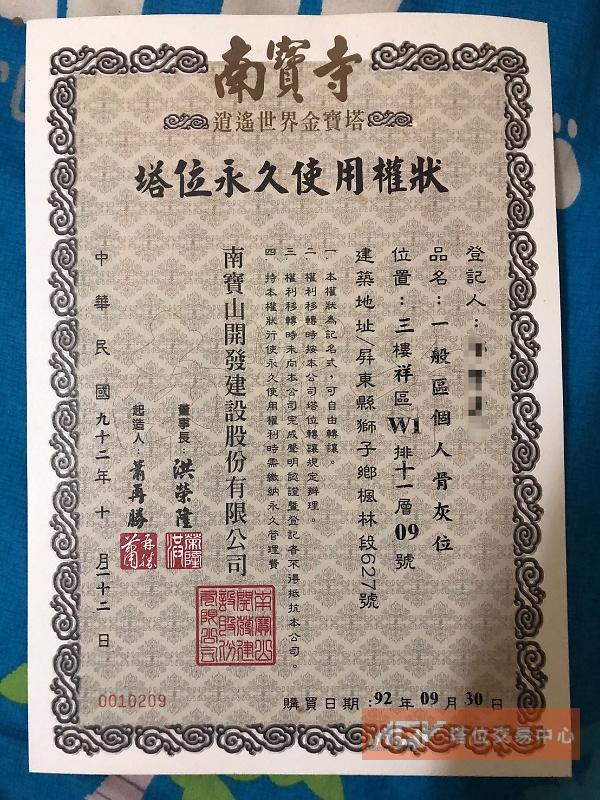 南寶寺
逍遙世界金寶塔
塔位永久使用權狀
登記人：
品名：一般區個人骨灰位
位置：三樓祥區W1排十一層09號
建築地址/屏東縣獅子鄉楓林段627號
一、本權狀為記名式，可自由轉讓。
二、權利移轉時按本公司塔位轉讓規定辦理。
三、權利移轉時未向本公司完成聲明認證暨登記者不得抵抗本公司。
四、持本權狀行使永久使用權利時需繳納永久管理費
南寶山開發建設股份有限公司
董事長：洪榮隆
起造人：蕭再勝
中華民國九十二年十月二十二日
南寶山開發建設股份有限公司
購買日期：92年09月30日
0010209
塔位交易中心